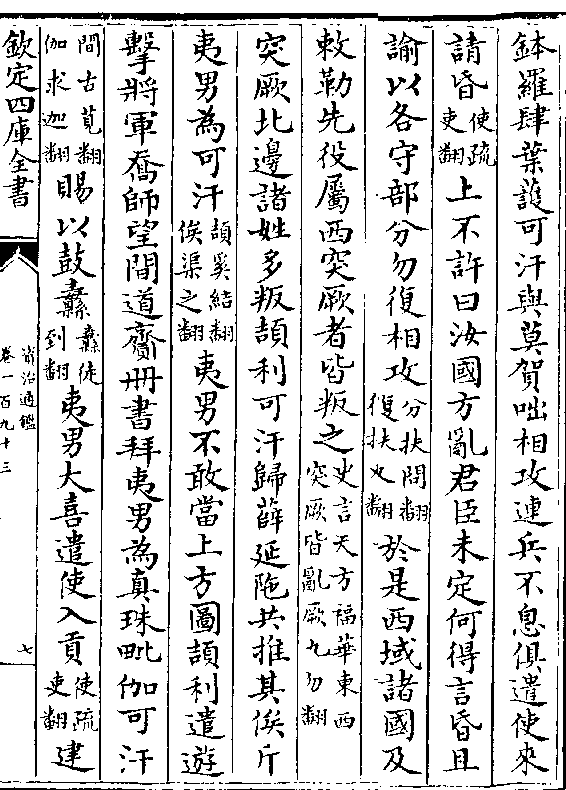 鉢羅肆葉護可汗與莫賀咄相攻連兵不息俱遣使來
請昏使疏吏翻上不許曰汝國方亂君臣未定何得言昏且
諭以各守部分勿復相攻分扶問翻復扶又翻於是西域諸國及
敕勒先役屬西突厥者皆叛之史言天方福華東西突厥皆亂厥九勿翻
突厥北邊諸姓多叛頡利可汗歸薛延陁共推其俟斤
夷男為可汗頡奚結翻俟渠之翻夷男不敢當上方圖頡利遣遊
擊將軍喬師望間道齎冊書拜夷男為真珠毗伽可汗
間古莧翻伽求迦翻賜以鼓纛纛徒到翻夷男大喜遣使入貢使疏吏翻建
欽定四庫全書
資治通鑑
卷一百九十三
七